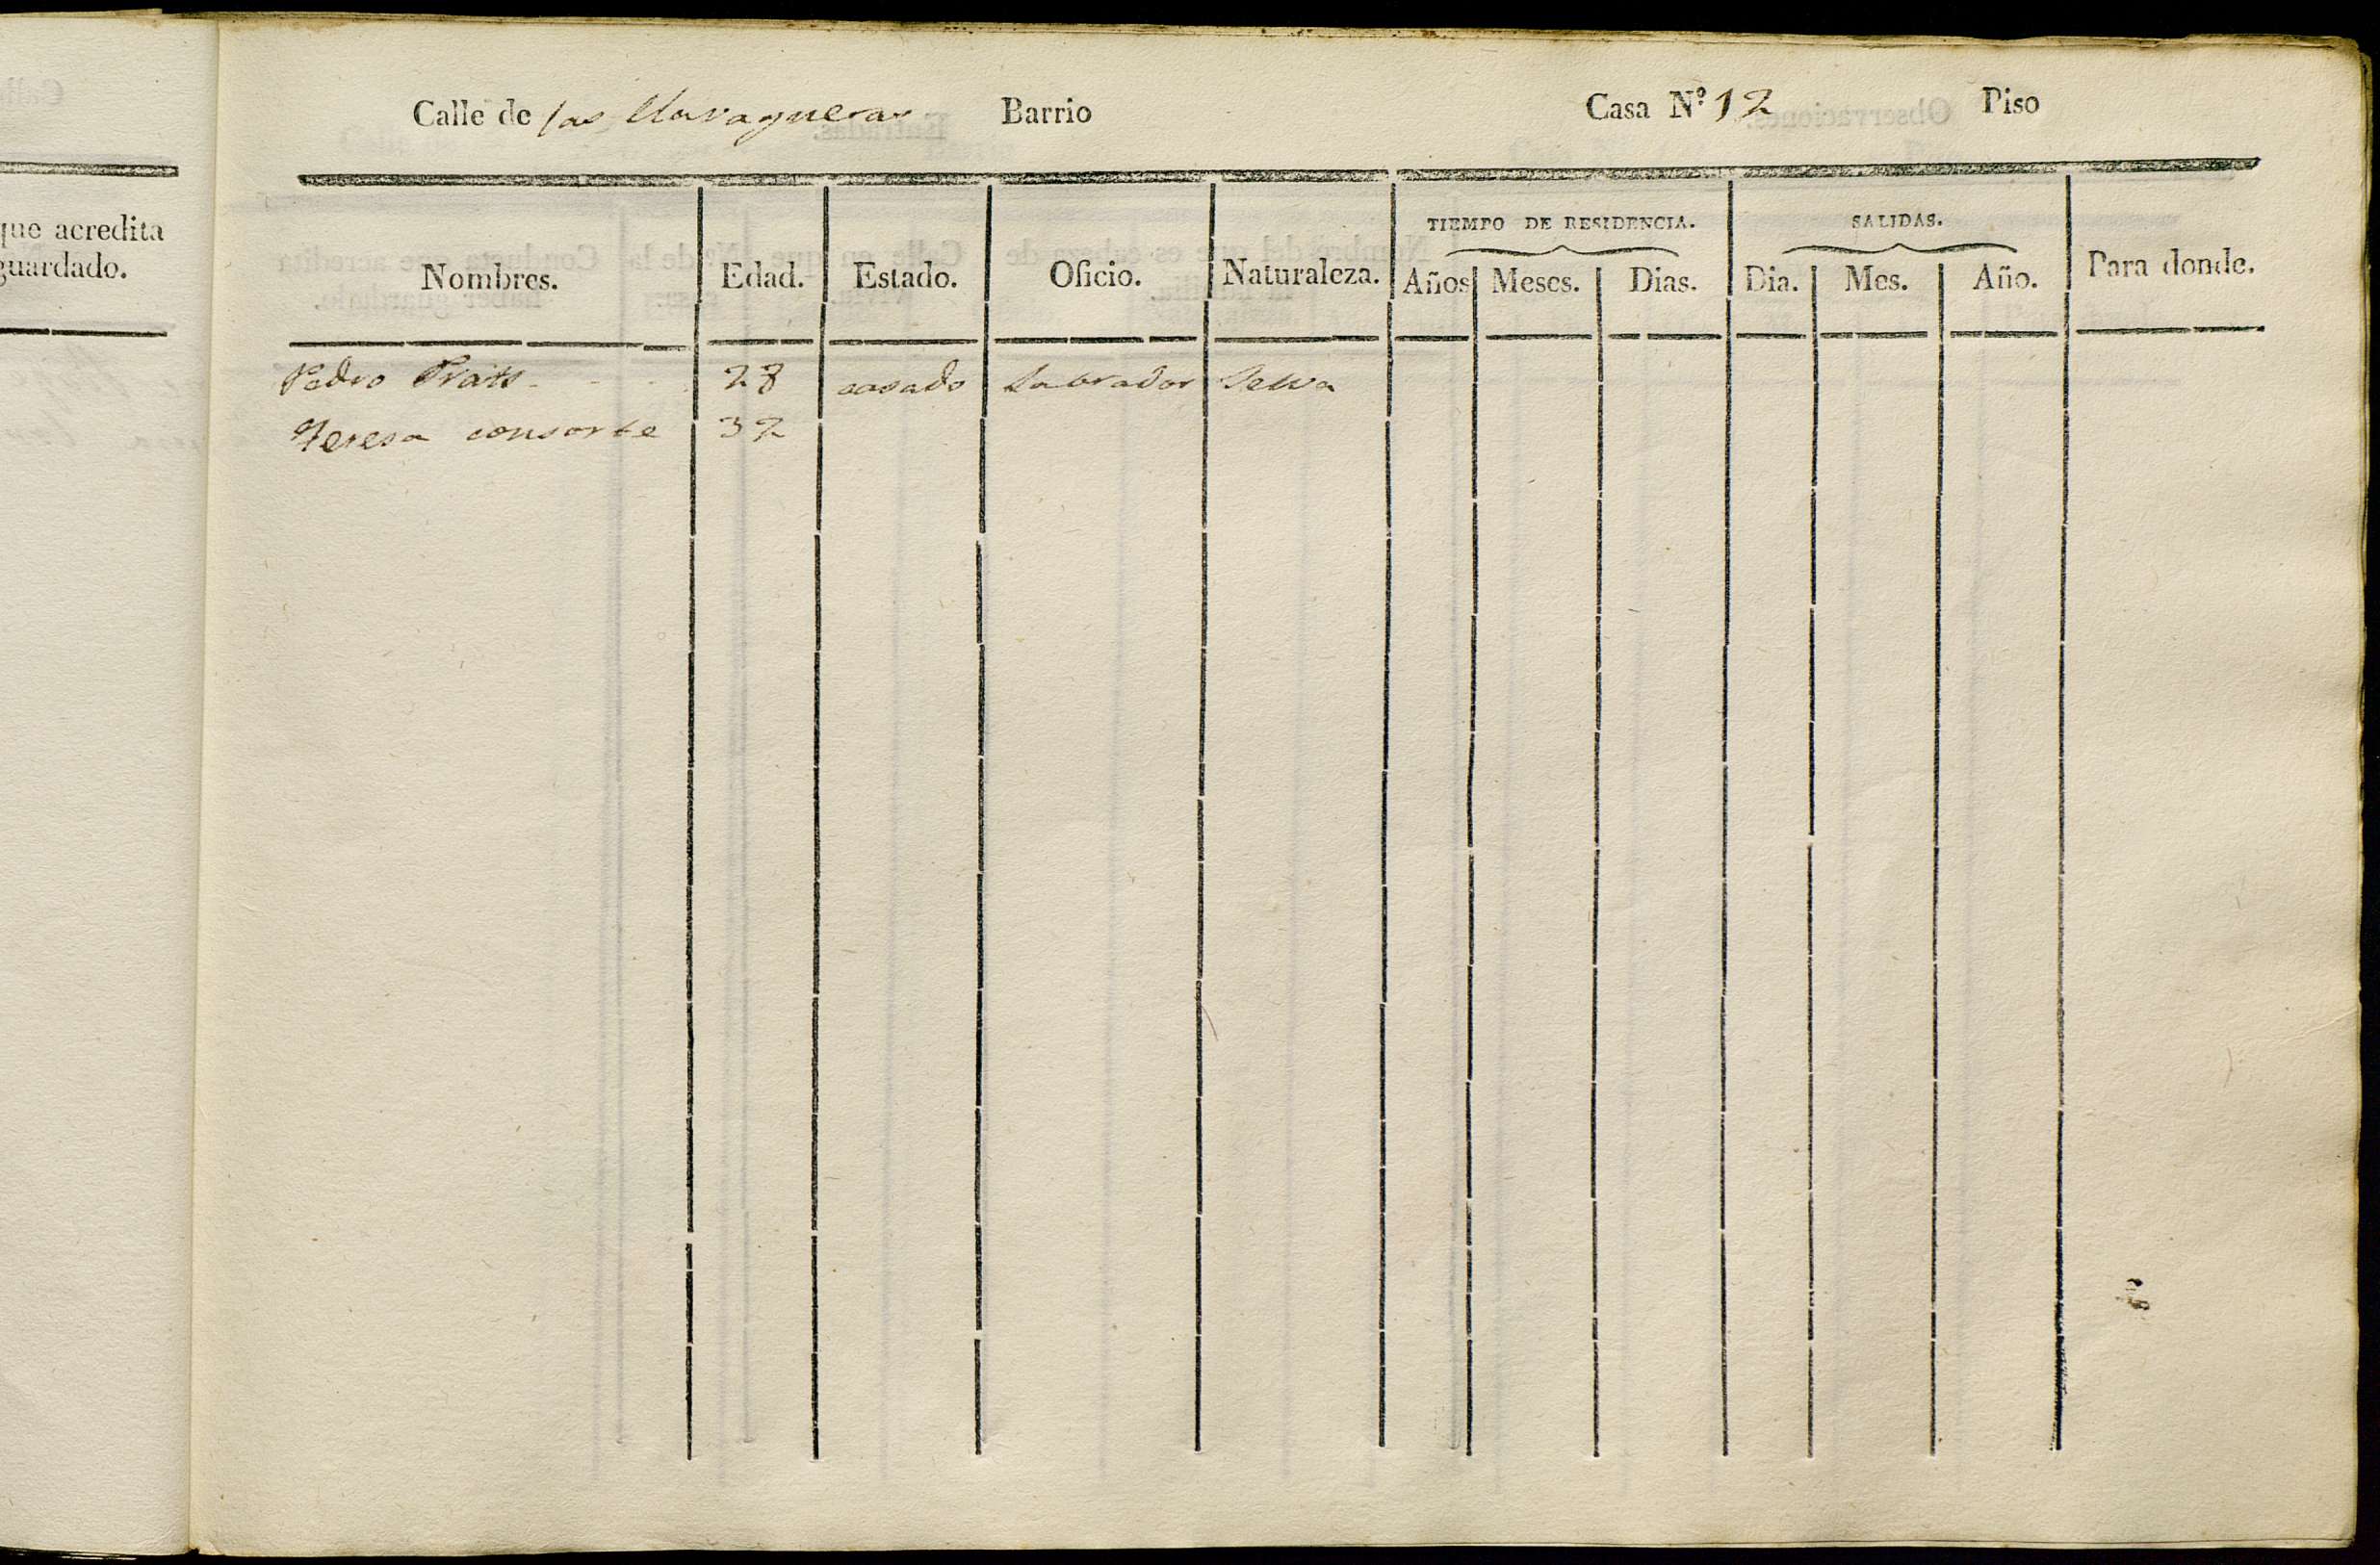 que acredita
guardado.
Calle de las Barrio Casa Nº 12 Piso
TIEMPO DE RESIDENCIA. SALIDAS.
Nombres. Edad. Estado. Oficio. Naturaleza. Años Meses. Dias. Dia. Mes. Año. Para donde.
Pedro Prats 28 casado Labrador Selva
Teresa consorte 32